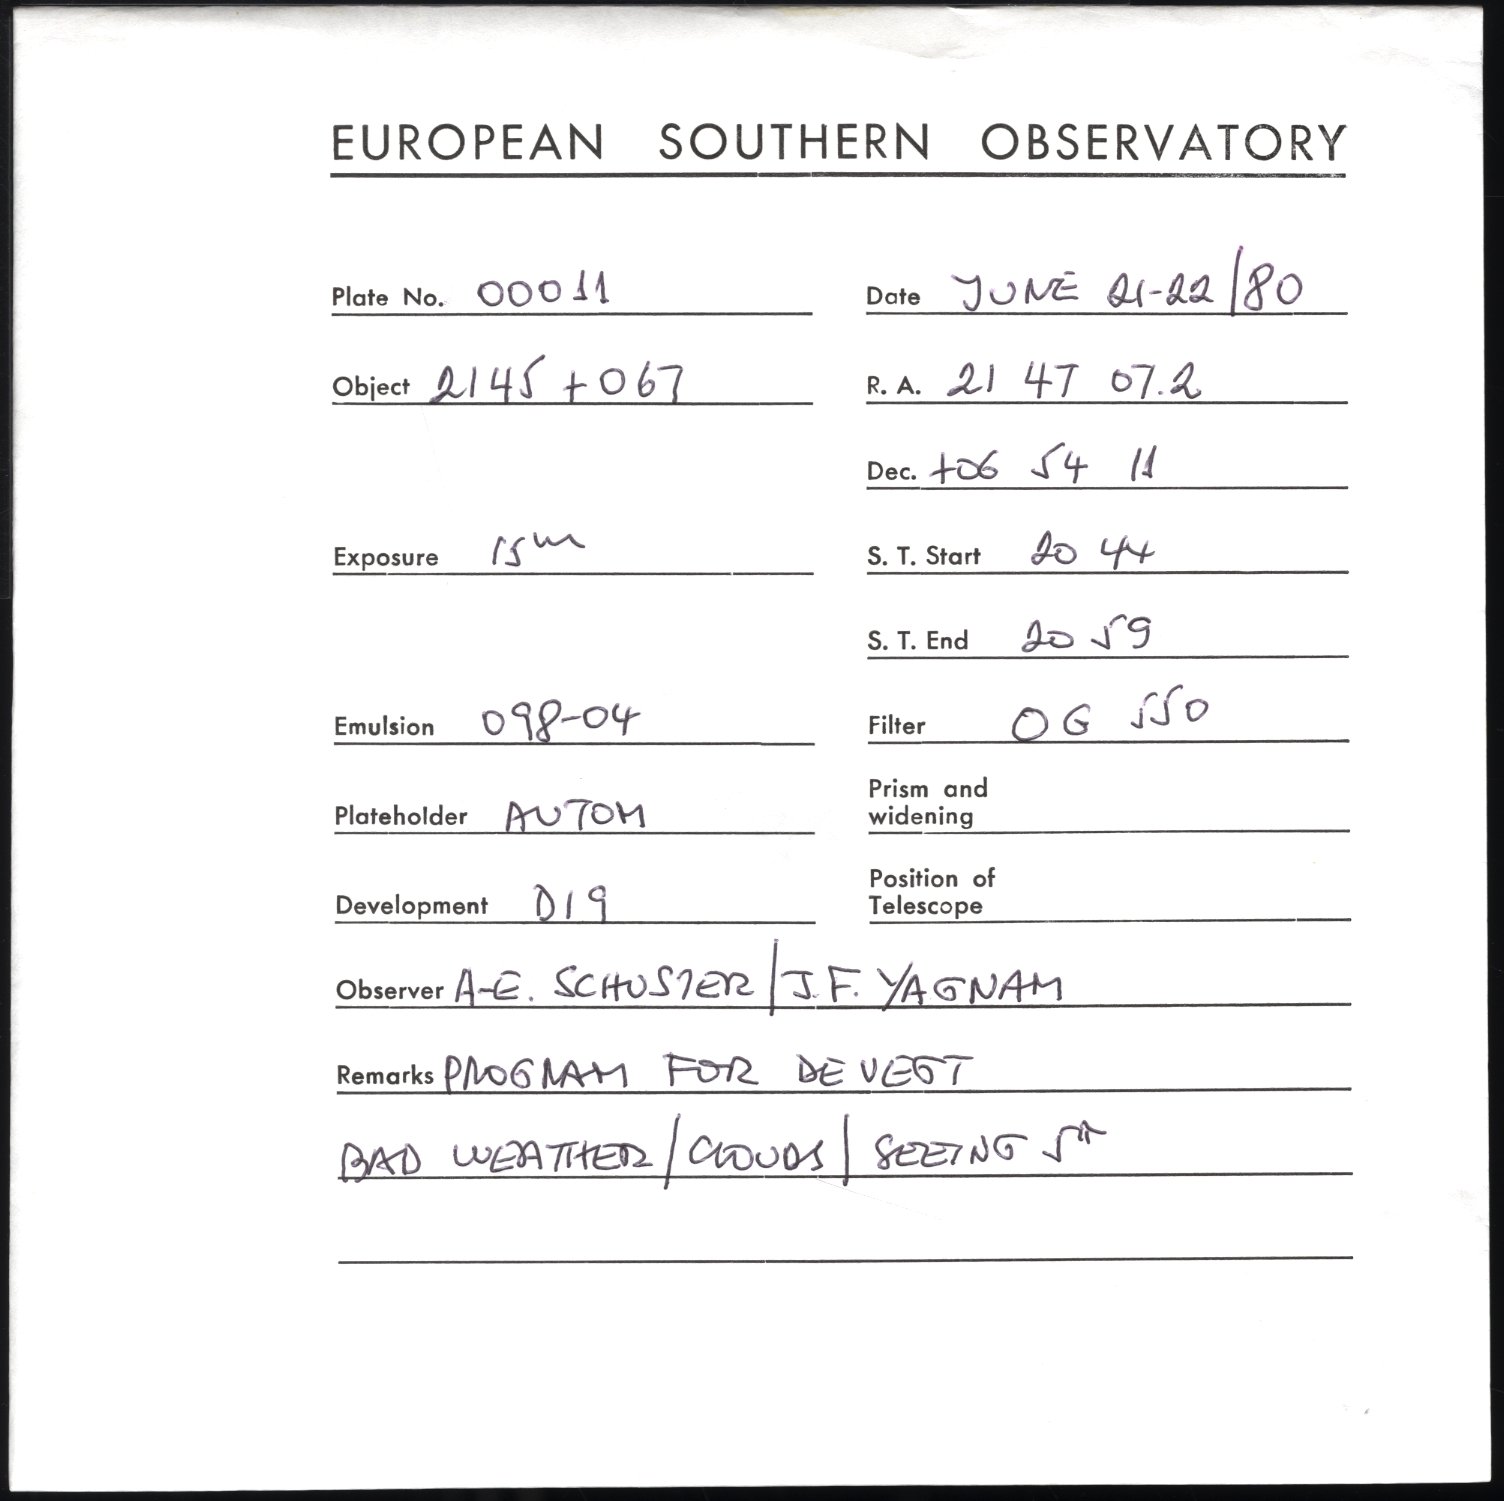 EUROPEAN SOUTHERN OBSERVATORY
Plate No. 00011 Date JUNE 21-22/80
Object 2145+067 R. A. 21 47 07.2
Dec. +06 54 11
Exposure 15m S. T. Start 20 44
S. T. End 20 59
Emulsion 098-04 Filter OG 550
Plateholder AUTOM Prism and
widening
Development D19 Position of
Telescope
Observer A-E. SCHUSTER/J.F. YAGNAM
Remarks PROGRAM FOR DE VEGT
BAD WEATHER/CLOUDS/SEEING 5"